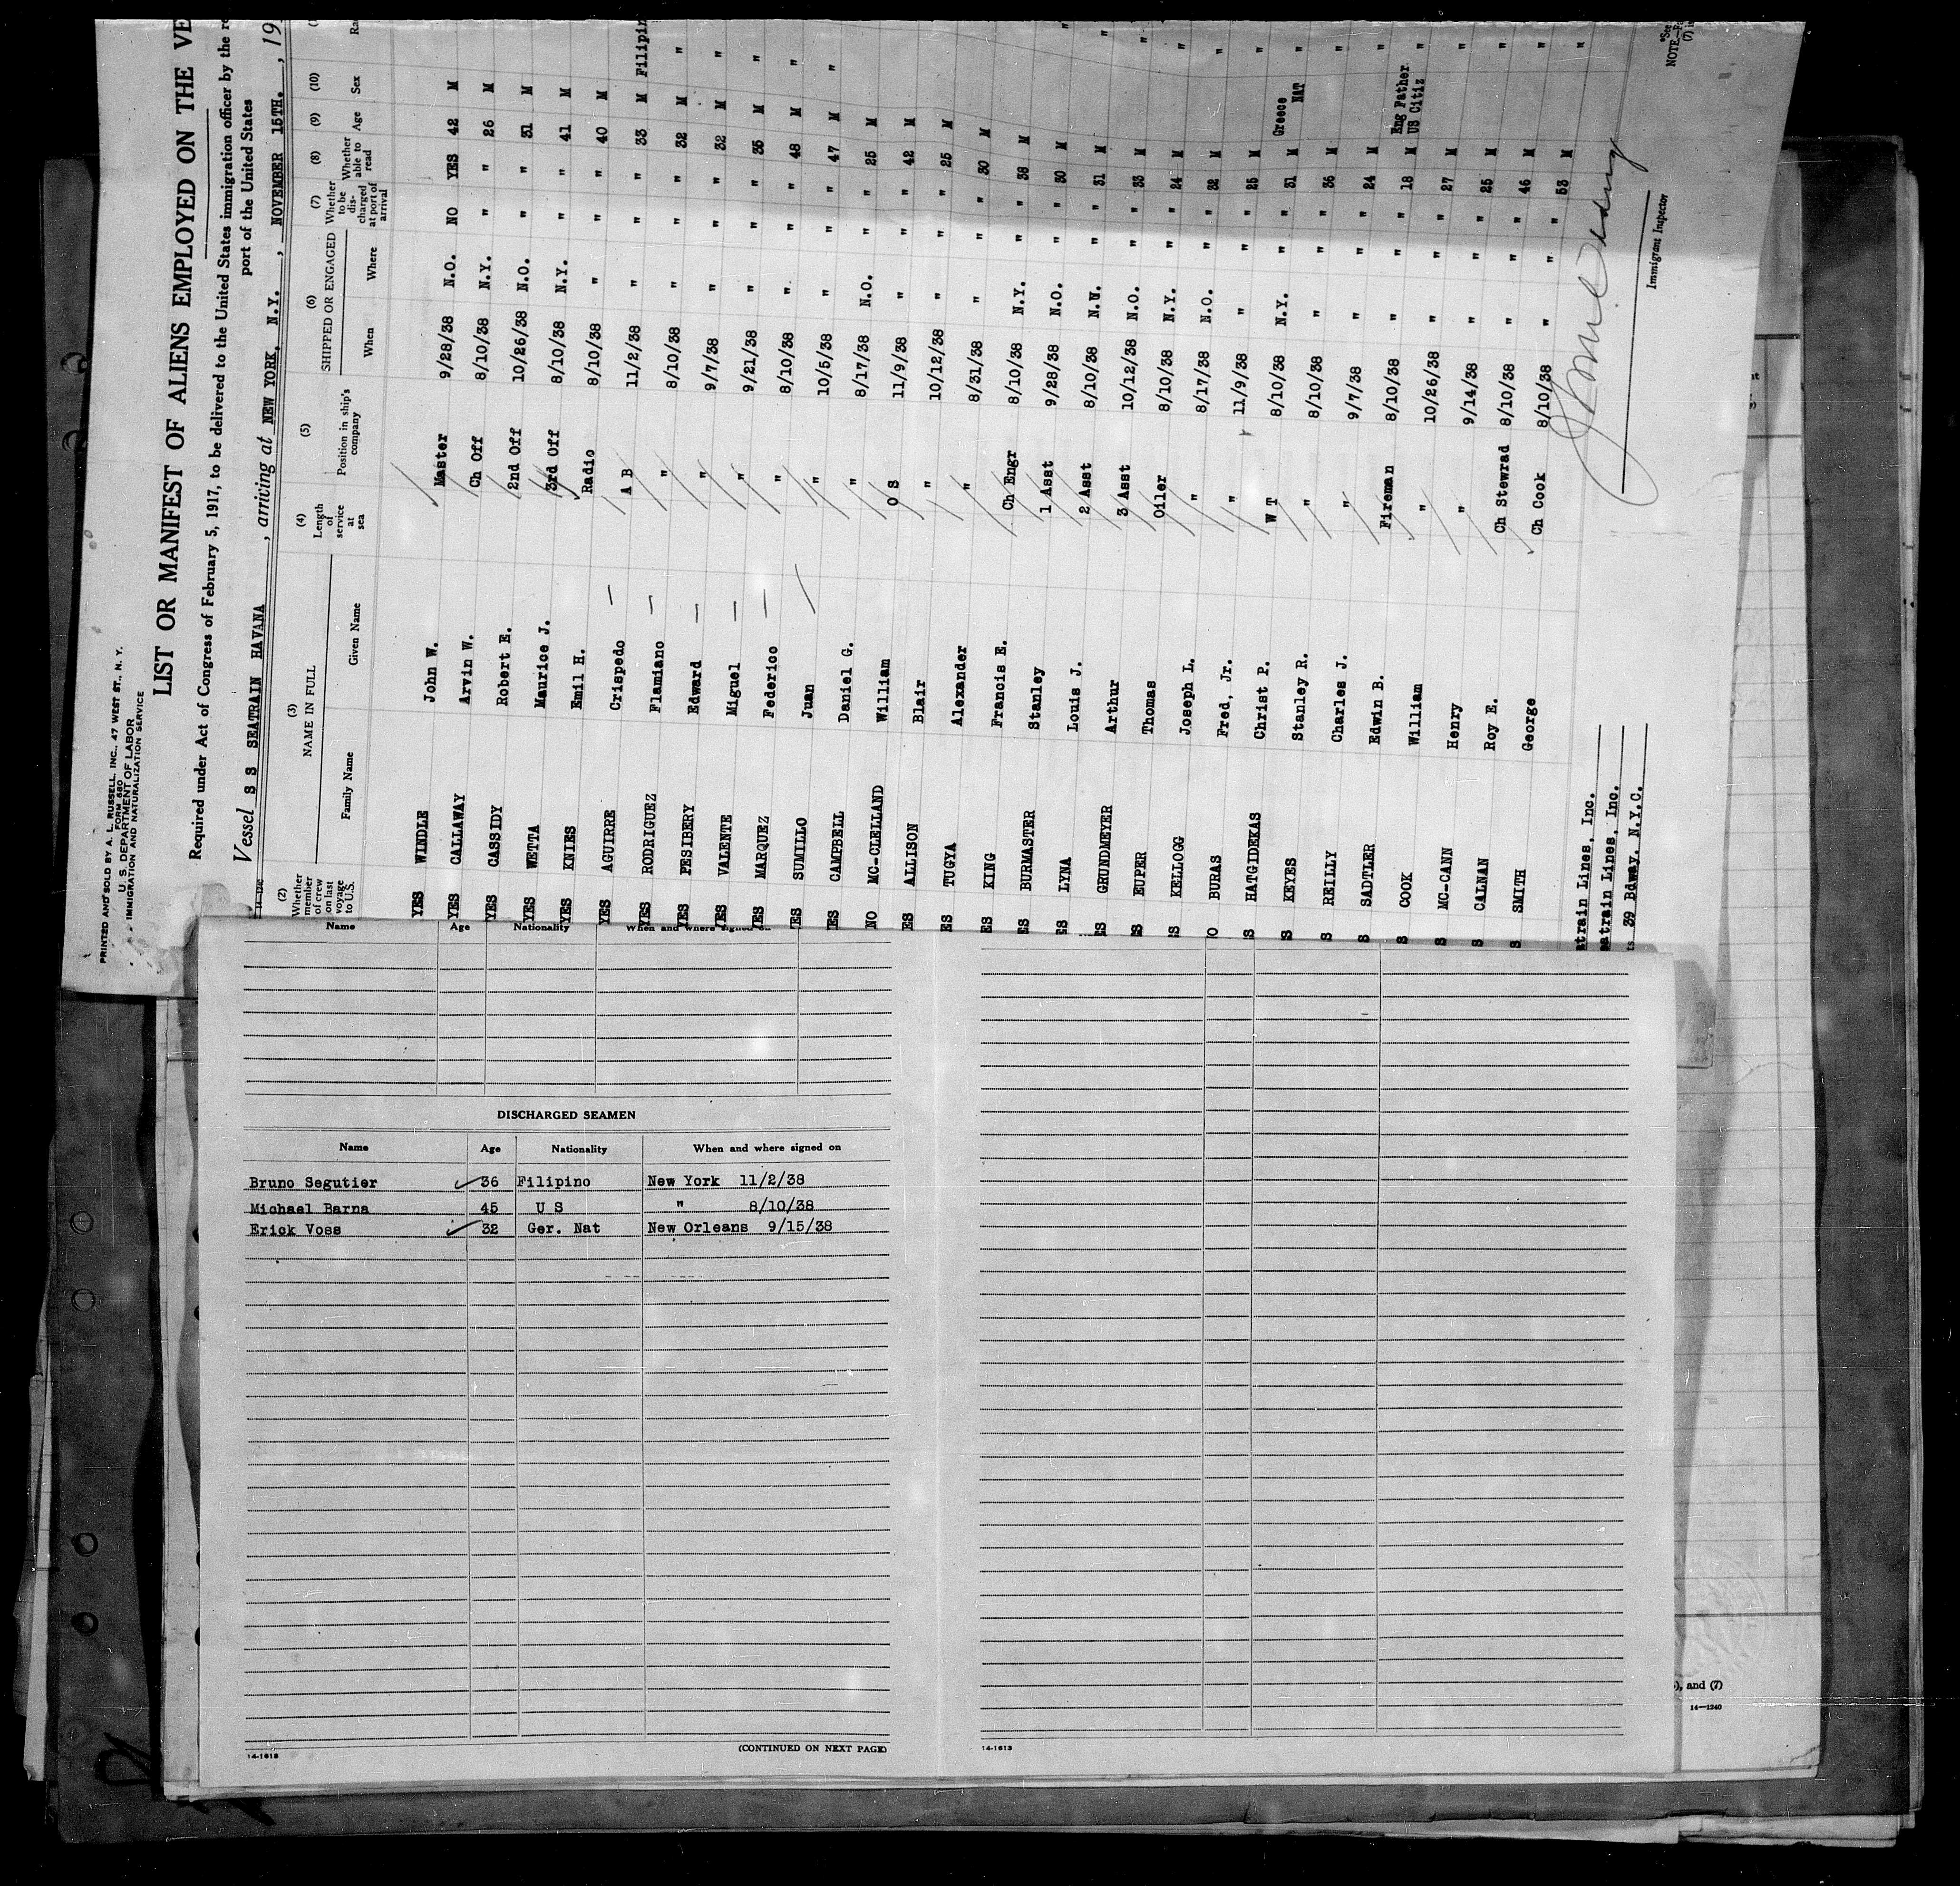 PRINTED AND SOLD BY A. L. RUSSELL, INC., 47 WEST ST., N. Y.
FORM 680
U. S. DEPARTMENT OF LABOR
IMMIGRATION AND NATURALIZATION SERVICE
LIST OR MANIFEST OF ALIENS EMPLOYED ON THE VE
Required under Act of Congress of February 5, 1917, to be delivered to the United States immigration officer by the
port of the United States
Vessel S S SEATRAIN HAVANA, arriving at NEW YORK, N.Y., NOVEMBER 15TH., 19
(2) (3) (4) (5) (6) (7) (8) (9) (10)
Whether member of crew on last voyage to U.S. NAME IN FULL Length of service at sea Position in ship's company SHIPPED OR ENGAGED Whether to be discharged at port of arrival Whether able to read Age Sex
Family Name Given Name When Where
YES WINDLE John W. Master 9/28/38 N.O. NO YES 42 M
YES CALLAWAY Arvin W. Ch Off 8/10/38 N.Y. " " 26 M
YES CASSIDY Robert E. 2nd Off 10/26/38 N.O. " " 31 M
YES WETTA Maurice J. 3rd Off 8/10/38 N.Y. " " 41 M
YES KNIES Emil H. Radio 8/10/38 " " " 40 M
YES AGUIRRE Crispedo A B 11/2/38 " " " 33 M Filipin
YES RODRIGUEZ Flamiano " 8/10/38 " " " 32 M "
YES PESIBERY Edward " 9/7/38 " " " 32 M "
YES VALENTE Miguel " 9/21/38 " " " 35 M "
YES MARQUEZ Federico " 8/10/38 " " " 48 M "
YES SUMILLO Juan " 10/5/38 " " " 47 M "
YES CAMPBELL Daniel G. " 8/17/38 N.O. " " 25 M
NO MC-CLELLAND William O S 11/9/38 " " " 42 M
ES ALLISON Blair " 10/12/38 " " " 25 M
ES TUGYA Alexander " 8/31/38 " " " 30 M
ES KING Francis E. Ch Engr 8/10/38 N.Y. " " 38 M
ES BURMASTER Stanley 1 Asst 9/28/38 N.O. " " 30 M "
ES LYNA Louis J. 2 Asst 8/10/38 N.Y. " " 31 M "
ES GRUNDMEYER Arthur 3 Asst 10/12/38 N.O. " " 33 M "
ES EUPER Thomas Oiler 8/10/38 N.Y. " " 24 M "
S KELLOGG Joseph L. " 8/17/38 N.O. " " 32 M "
O BURAS Fred, Jr. " 11/9/38 " " " 25 M "
S HATGIDEKAS Christ P. W T 8/10/38 N.Y. " " 31 M Greece NAT "
S KEYES Stanley R. " 8/10/38 " " " 36 M "
S REILLY Charles J. " 9/7/38 " " " 24 M "
S SADTLER Edwin B. Fireman 8/10/38 " " " 18 M Eng Father US Citiz "
S COOK William " 10/26/38 " " " 27 M "
S MC-CANN Henry " 9/14/38 " " " 25 M "
S CALNAN Roy E. Ch Stewrad 8/10/38 " " " 46 M "
S SMITH George Ch Cook 8/10/38 " " " 53 M "
train Lines, Inc.
eatrain Lines, Inc.
ts 39 Bdway, N.Y.C.
Immigrant Inspector
NOTE.—
Name Age Nationality When and where signed on
DISCHARGED SEAMEN
Name Age Nationality When and where signed on
Bruno Segutier 36 Filipino New York 11/2/38
Michael Barna 45 U S " 8/10/38
Erick Voss 32 Ger. Nat New Orleans 9/15/38
14-1613 (CONTINUED ON NEXT PAGE)
14-1613
), and (7)
14—1240